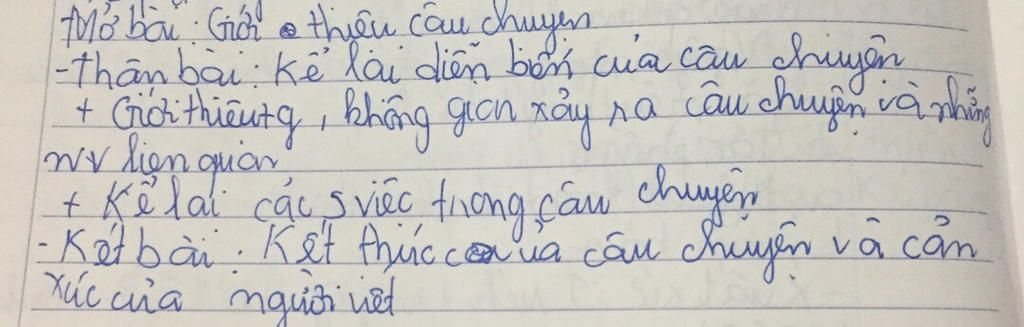 Mở bài: Giới thiệu câu chuyện
- Thân bài: Kể lại diễn biến của câu chuyện
+ Giới thiệu tg, không gian xảy ra câu chuyện và những
nv liên quan
+ Kể lại các sviệc trong câu chuyện
- Kết bài: Kết thúc của câu chuyện và cảm
xúc của người viết